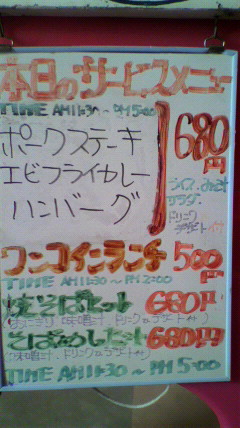 本日のサービスメニュー
TIME AM11:30 ~ PM5:00
ポークステーキ
エビフライカレー
ハンバーグ
680円
ライス.みそ汁
サラダ.
ドリンク
デザート付
ワンコインランチ 500円
TIME AM11:30 ~ PM2:00
焼そばセット 680円
(おにぎり.味噌汁.ドリンクorデザート付)
そばめしセット 680円
(味噌汁.ドリンクorデザート付)
TIME AM11:30 ~ PM5:00